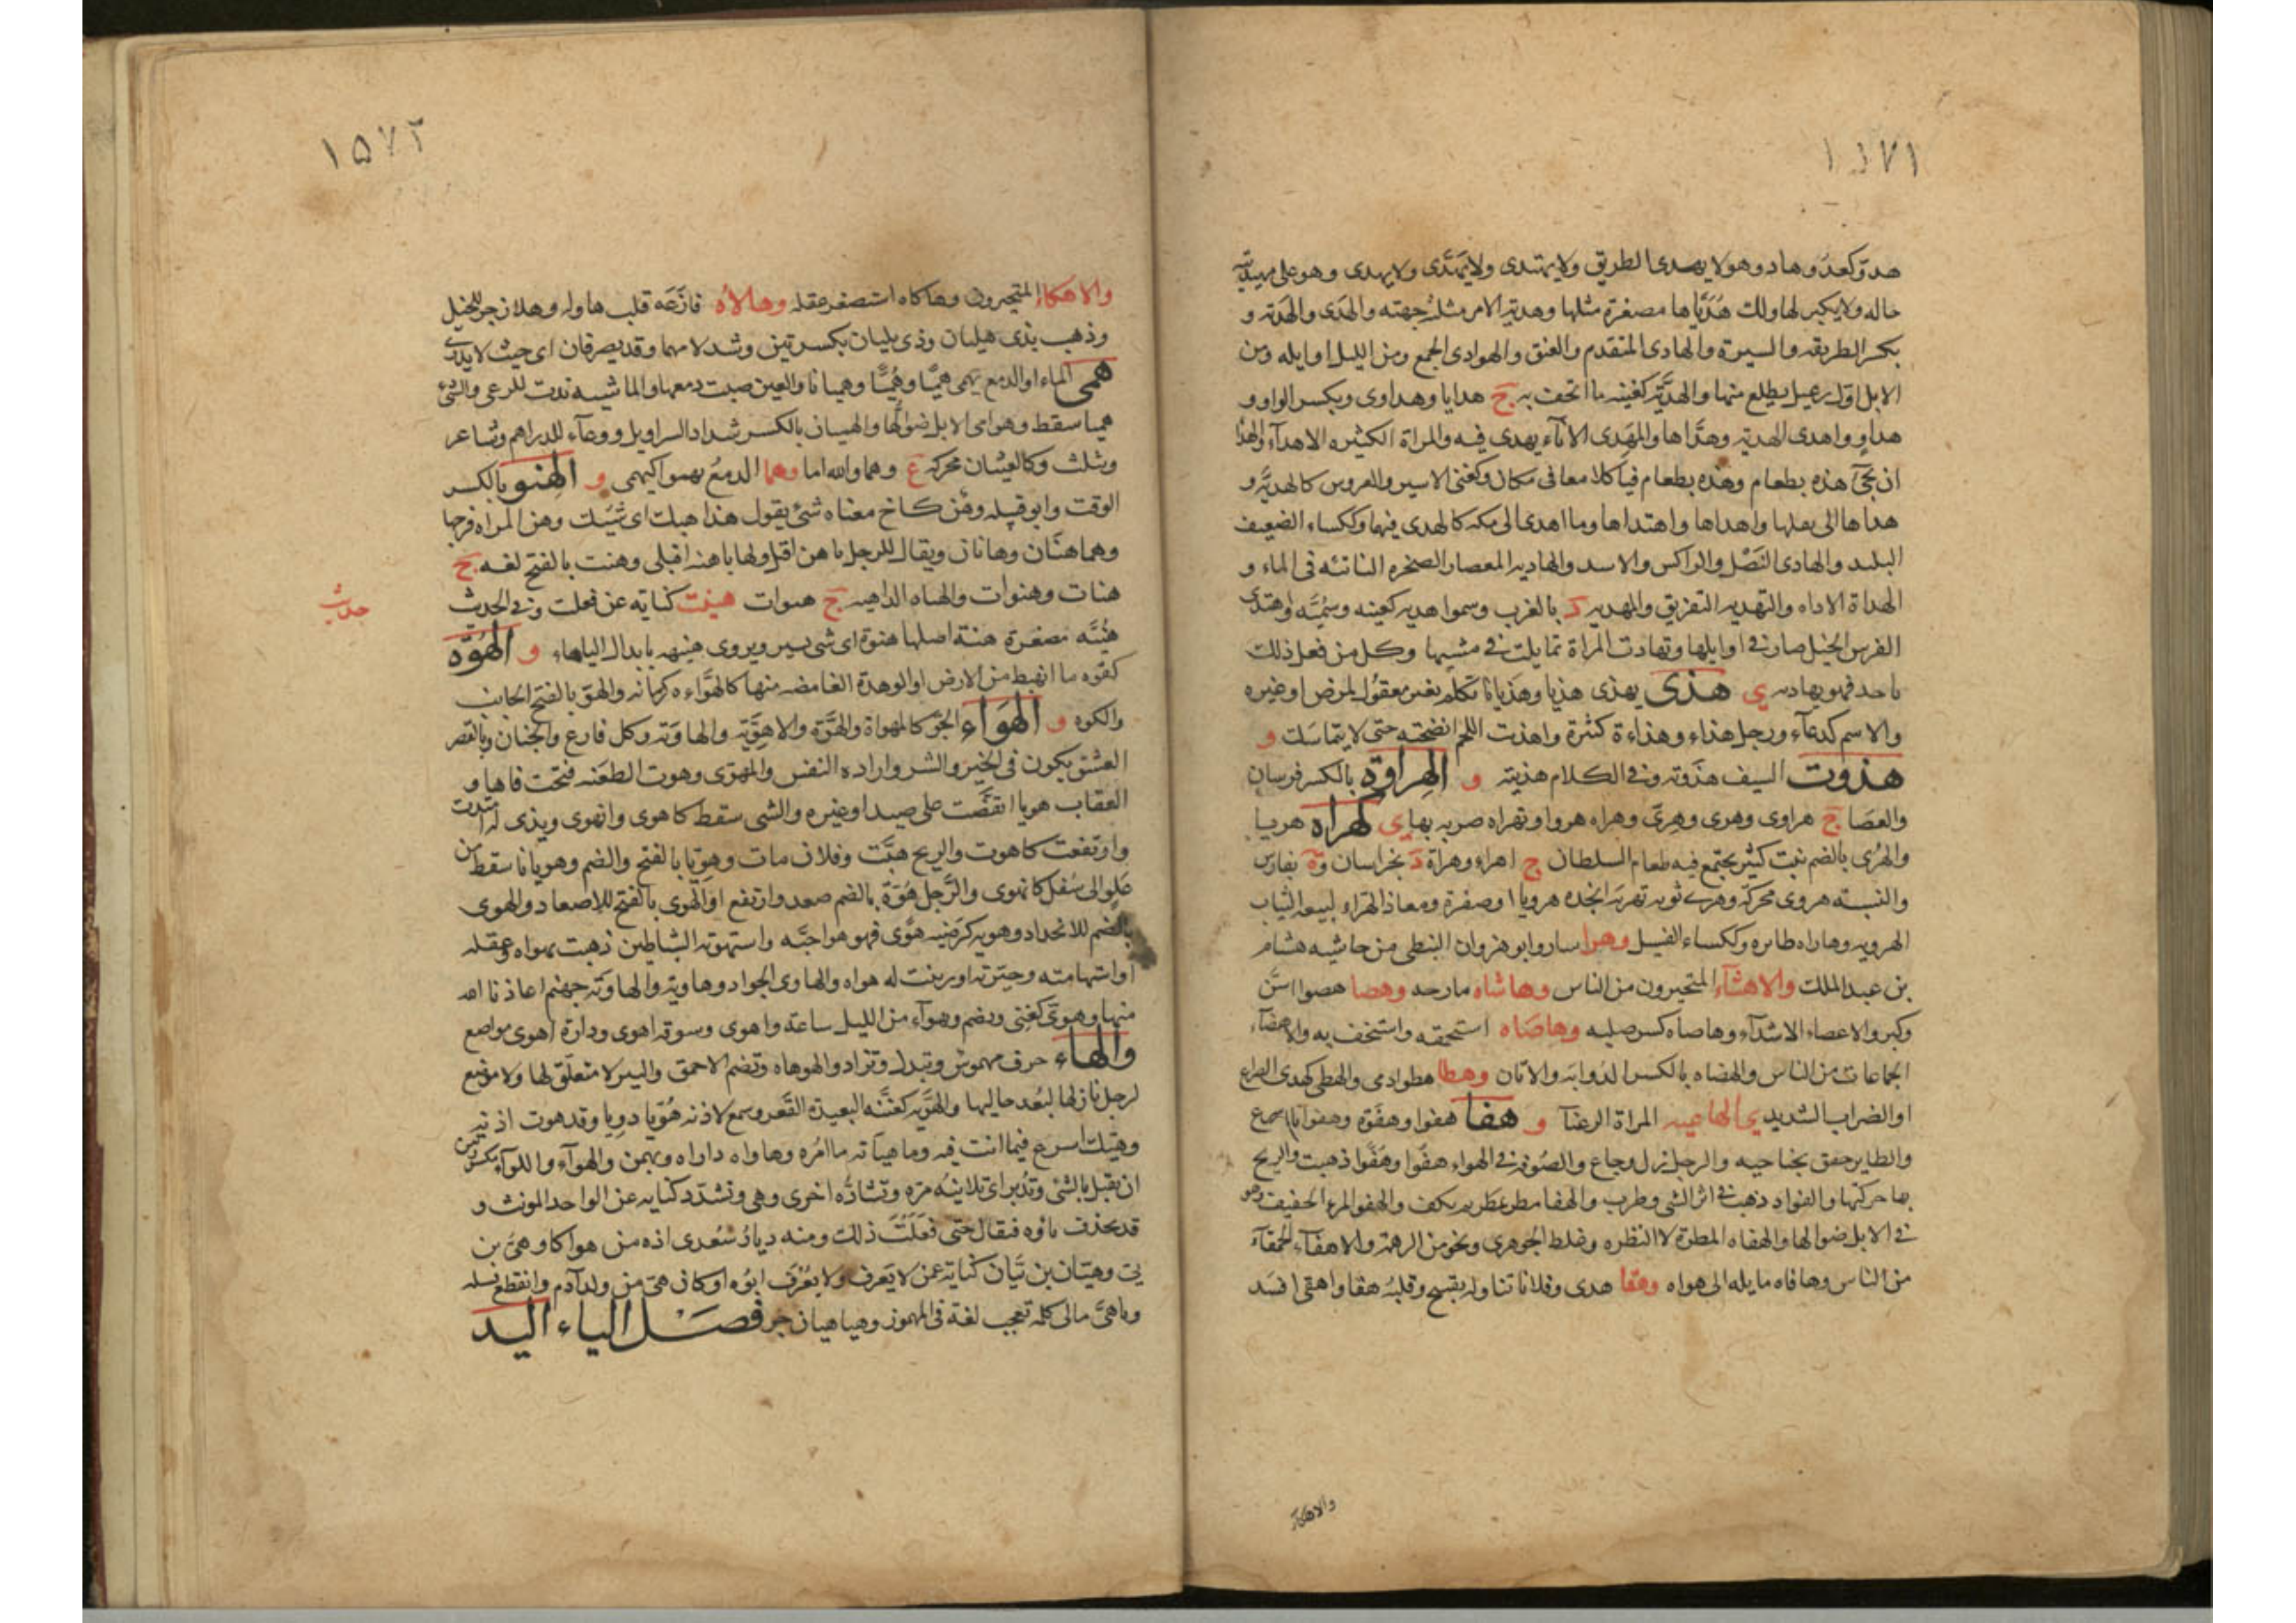 ١٥٧١
هدو كعدو وهاد وهو لا يهدى الطريق ولا يهتدى ولا يهدى ولا يهدى وهو على مهيديته
حاله ولا يكبر لها ولك هديّاها مصغرة مثلها وهدية الامر مثلثه جهته والهدى والهدية و
بكسر الطريقه والسيرة والهادى المتقدم والعنق والهوادى الجمع ومن الليل اوايله ومن
الابل اول رعيل يطلع منها والهديّة كغنية ما اتحف به ج هدايا وهداوى وبكسر الواو و
هداو واهدى الهدية وهدّاها والمهدى الاناء يهدى فيه والمراة الكثيره الاهدآء والهدا
ان تجئ هذه بطعام وهذه بطعام فياكلا معا فى مكان وكغنى الاسير والعروس كالهديّة و
هداها الى بعلها واهداها واهتداها وما اهدى الى مكه كالهدى فيهما وككساء الضعيف
البليد والهادى النصل والراكس والاسد والهاديه المعصار الصخره الناتئه فى الماء و
الهداة الاداه والتهديه التفريق والمهديه د بالغرب وسموا هديه كغنيه وسميّه واهتدى
الفرس الخيل صار فى اوايلها وتهادت المراة تمايلت فى مشيها وكل من فعل ذلك
باحد فهو يهاديه ي هذى يهذى هذيا وهذيانا تكلم بغير معقول لمرض او غيره
والاسم كدعآء ورجل هذاء وهذاءة كثرة واهذت اللحم انضجته حتى لا يتماسك و
هذوت السيف هذوته وفى الكلام هذيته و الهراوة بالكسر فرسان
والعصا ج هراوى وهرى وهرى وهراه هروا وتهراه ضربه بها ي لهراه هريا
والهرى بالضم بيت كثير يجتمع فيه طعام السلطان ج اهراء وهراة د بخراسان وة بفارس
والنسبة هروى محركة وهرى ثوبه تهرية اتخذه هرويا او صفرة ومعاذ الهراء لبيعه الثياب
الهرويه وهاراه طانزه وككساء الفسيل وهرا سار وابو هزوان النبطى من حاشيه هشام
بن عبد الملك والاهشآء المتحيرون من الناس وهاشاه مازحه وهصا هصوا اسنّ
وكبر والاعصاء الاشدآء وهاصاه كسر صلبه وهاضاه استحمقه واستخف به والاهضآء
الجماعات من الناس والهضاه بالكسر الذوابة والاتان وهطا هطوا رمى والهطى كهدى الصراع
او الضراب الشديد ي الهاعيه المراة الرعنآ و هفا هفوا وهفوة وهفوانا اسرع
والطاير خفق بجناحيه والرجل زل وجاع والصوفه فى الهواء هفوا وهفوا ذهبت والريح
بها حركتها والفواد ذهب فى اثر الشى وطرب والهفا مطر يمطر ثم يكف والهفو المرء الخفيف وهو
فى الابل ضوالها والهفاه المطرة لا النظره وغلط الجوهرى ونحو من الرهمة والاهفاء الحمقآء
من الناس وهافاه مايله الى هواه وهقا هدى وفلانا تناوله بقبيح وقلبه هفا واهقى افسد
والاهكاء
١٥٧٢
والاهكاء المتحيرون وهاكاه استصغر عقله وهالاه فازعه قلب هاوله وهلا زجر للخيل
وذهب بذى هليان وذى بليان بكسرتين وشد لامهما وقد يصرفان اى حيث لا يدرى
همى الماء او الدمع يهمى هميا وهميا وهميانا والعين صبت دمعها والماشيه ندت للرعى والشئ
هميا سقط وهوامى الابل ضوالّها والهميان بالكسر شداد السراويل ووعآء للدراهم وشاعر
ويثلث وكالعيثان محركه ع وهما والله اما وهما الدمع يهموا كيهمى و الهنو بالكسر
الوقت وابو قبيله وهن كاخ معناه شئ يقول هذا هنك اى شيئك وهن المراه فرجها
وهما هنان وهنانان ويقال للرجل يا هن اقبل ولها يا هنه اقبلى وهنت بالفتح لغه ج
هنات وهنوات والهناه الداهيه ج هنوات هنيت كنايه عن فعلت وفى الحديث
حدث
هنيّه مصغرة هنة اصلها هنوة اى شى يسير ويروى هنيهه بابدال الياهاء و الهوّه
كقوه ما انهبط من الارض او الوهدة الغامضه منها كالهوّاءه كرمانه والهوّ بالفتح الجانب
والكوه و الهواء الجوّ كالمهواة والهوّة والاهويّة والهاويّة وكل فارغ والجبان وبالقصر
العشق يكون فى الخير والشر واراده النفس والمهوّى وهوت الطعنه فتحت فاها و
العقاب هويا انقضّت على صيد او غيره والشى سقط كاهوى وانهوى ويدى له امتدت
وارتفعت كاهوت والريح هبّت وفلان مات وهويا بالفتح والضم وهويانا سقط من
علو الى سفل كانهوى والرجل هوّة بالضم صعد وارتفع او الهوى بالفتح للاصعاد والهوى
بالضم للانحدار وهويه كرضيه هوى فهو هو احبّه واستهوته الشياطين ذهبت بهواه وعقله
او استهامته وحيرته او زينت له هواه والهاوى الجراد وهاوية والهاوية جهنم اعاذنا الله
منها وهوىّ كغنى ويضم وهوآء من الليل ساعة واهوى وسوقه اهوى ودارة اهوى مواضع
والهاء حرف مهموس وتبدل وتزاد والهوهاه وتضم الاحمق والبير لا متعلّق لها ولا موضع
لرجل نازلها لبعد حاليها والهويّه كغنيّه البعيدة القعر وسمع لاذنه هويّا دويا وقد هوت اذنه
وهيّك اسرع فيما انت فيه وما هيّانه ما امره وهاواه داراه ويهمز والهوآء واللوآء بكسرهن
ان يقبل بالشى وتدبر اى تلاينه مره وتشادّه اخرى وهى وتشدّد كنايه عن الواحد المونث و
قد يحذف ياوه فيقال حتى فعلت ذلك ومنه ديار سعدى اذه من هواكا وهىّ بن
بى وهيّان بن بيّان كناية عمن لا يعرف ولا يعرف ابوه او كان هى من ولد آدم وانقطع نسله
وياهىّ مالى كلمه تعجب لغة فى المهموز وهيا هيا زجر فصــل الياء اليد